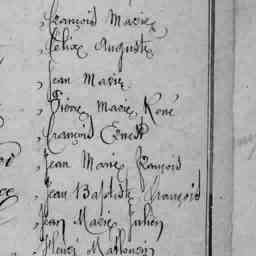 , François Marie,
, Félix Auguste
, Jean Marie
, Pierre Marie, René
, François Ernest
, Jean Marie, François
, Jean Baptiste François
, Jean Marie Julien
, Henri